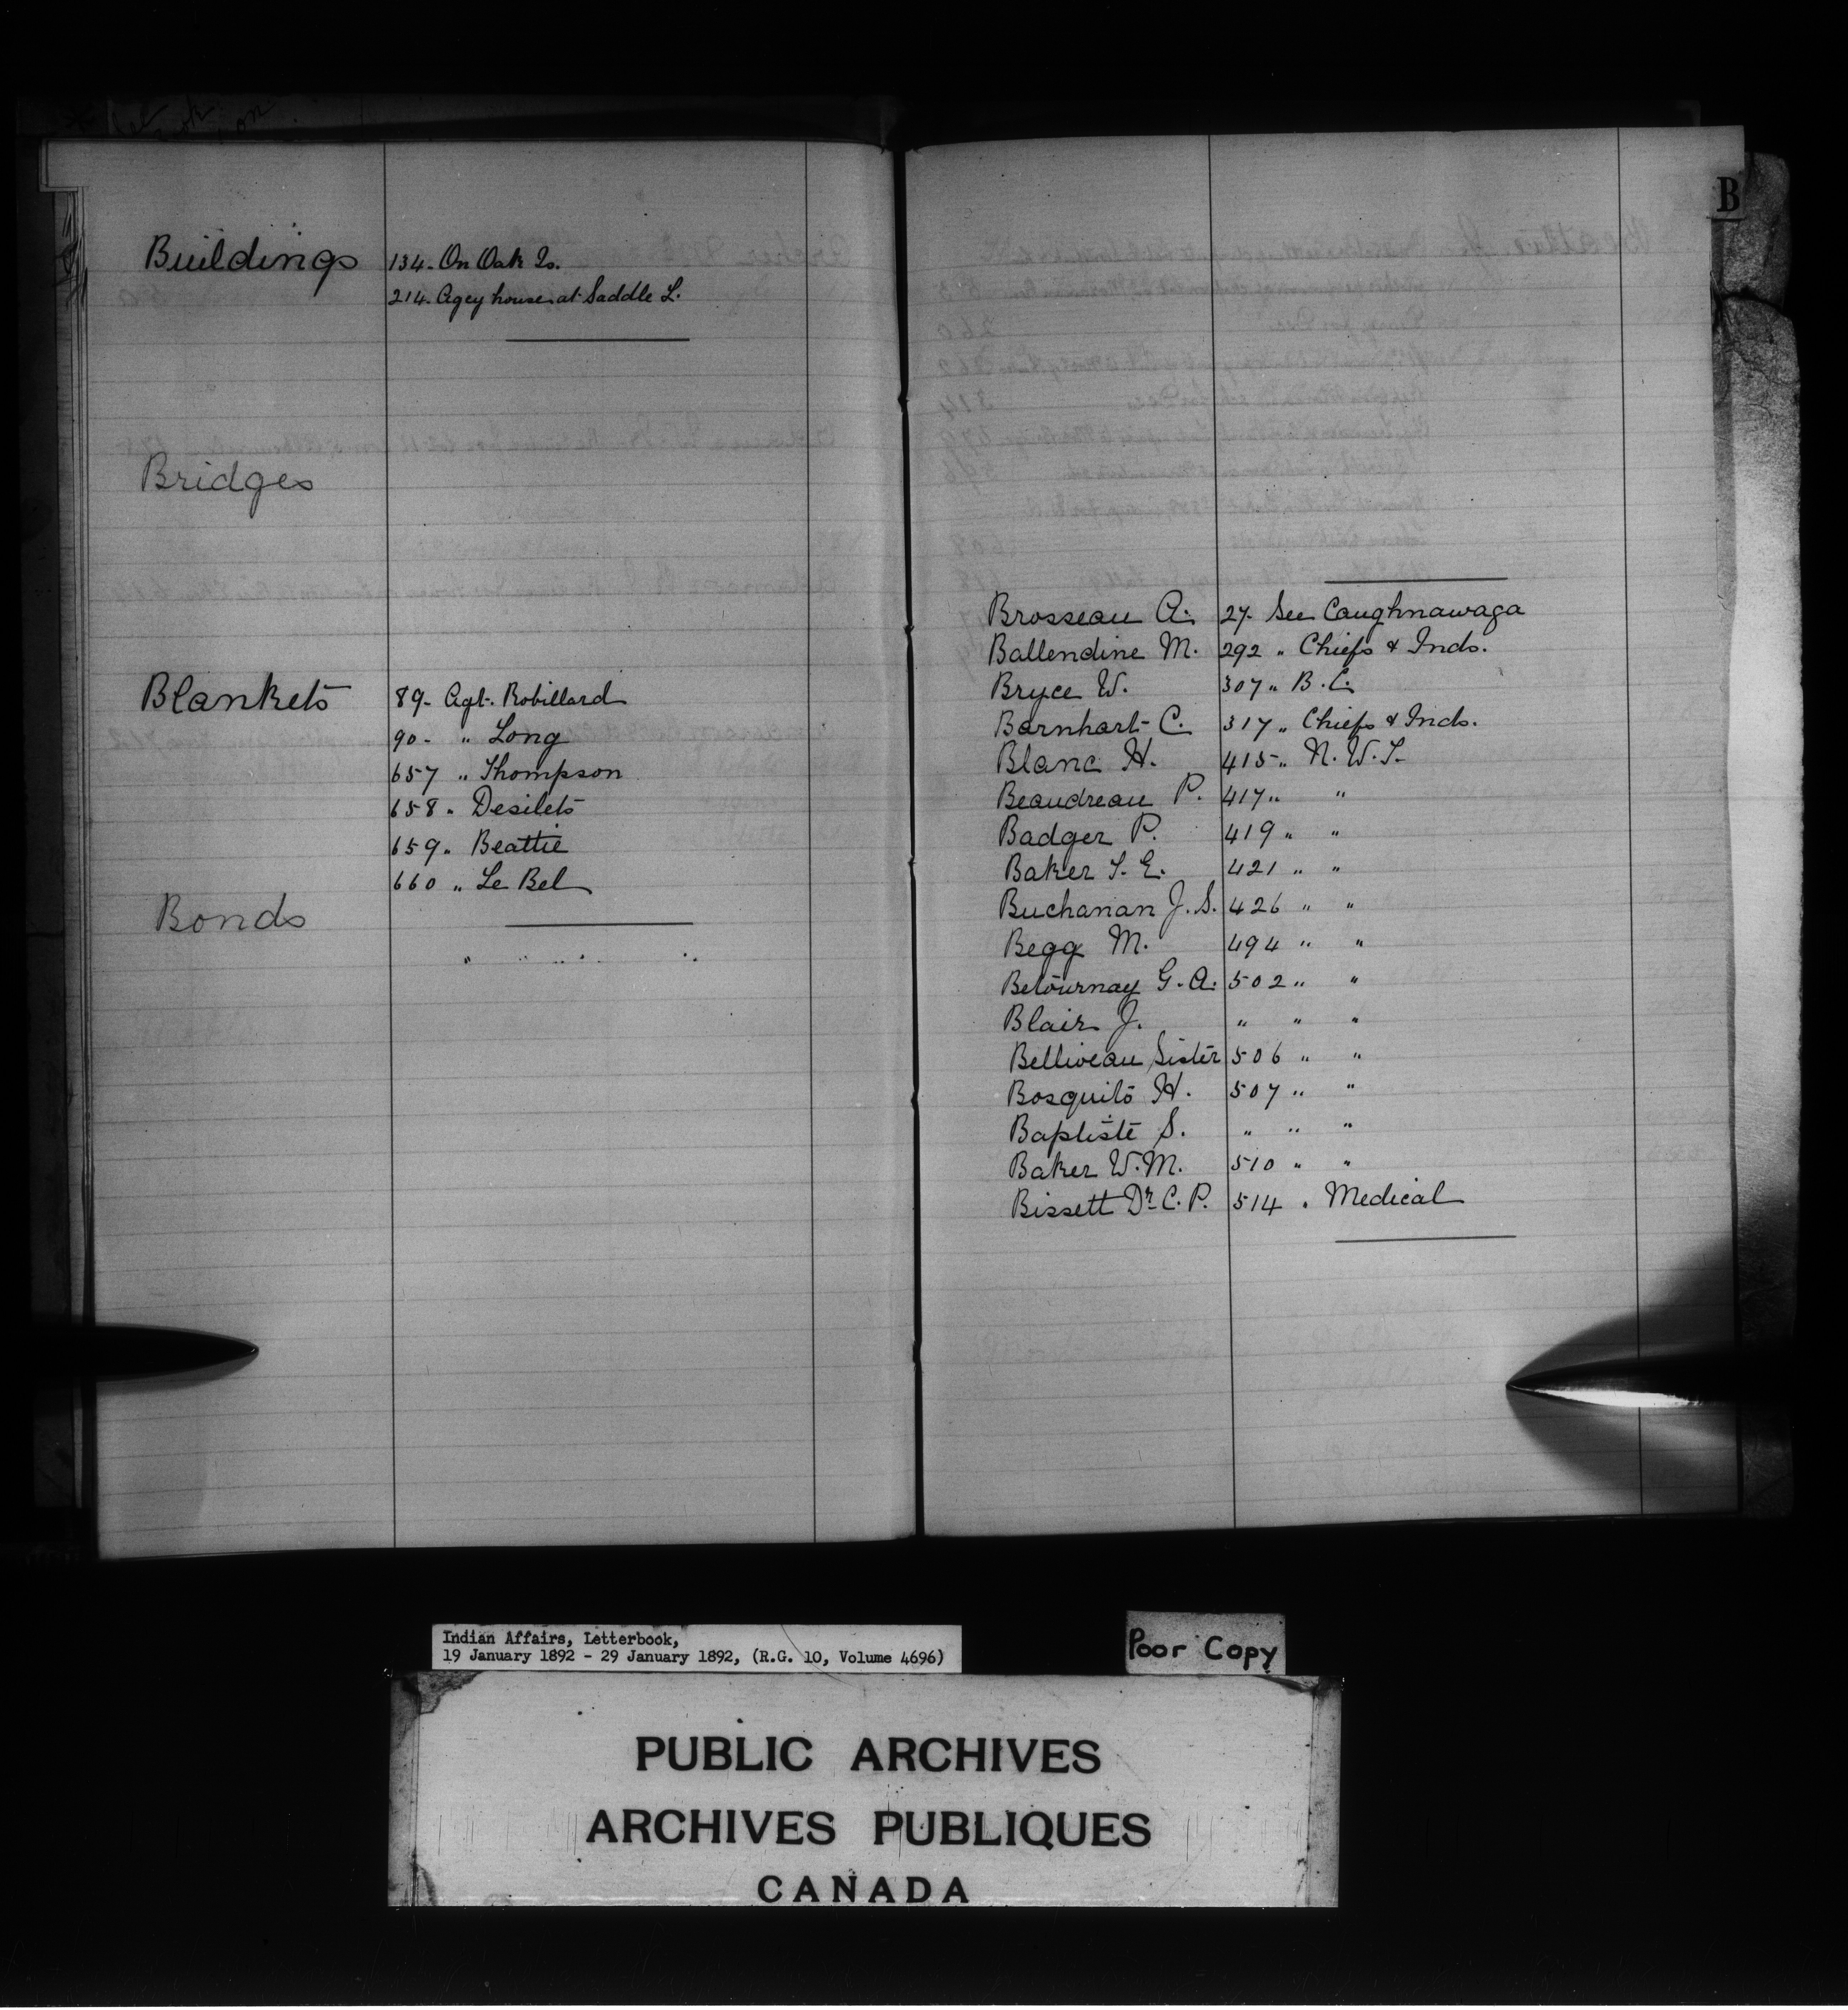 Buildings 134. On Oak Is.
214. Agcy house at Saddle L.
Bridges
Blankets 89. Agt. Robillard
90. " Long
657 " Thompson
658 " Desilets
659 " Beattie
660 " Le Bel
Bonds
B
Brosseau A. 27. See Caughnawaga
Ballendine M. 292 " Chiefs & Inds.
Bryce W. 307 " B.C.
Barnhart C. 317 " Chiefs & Inds.
Blanc H. 415 " N.W.T.
Beaudreau P. 417 " "
Badger P. 419 " "
Baker T. E. 421 " "
Buchanan J. S. 426 " "
Begg M. 494 " "
Betournay G. A. 502 " "
Blair J. " " "
Belliveau Sister 506 " "
Bosquito H. 507 " "
Baptiste S. " " "
Baker W. M. 510 " "
Bissett Dr. C. P. 514 " Medical
Indian Affairs, Letterbook,
19 January 1892 - 29 January 1892, (R.G. 10, Volume 4696)
Poor Copy
PUBLIC ARCHIVES
ARCHIVES PUBLIQUES
CANADA